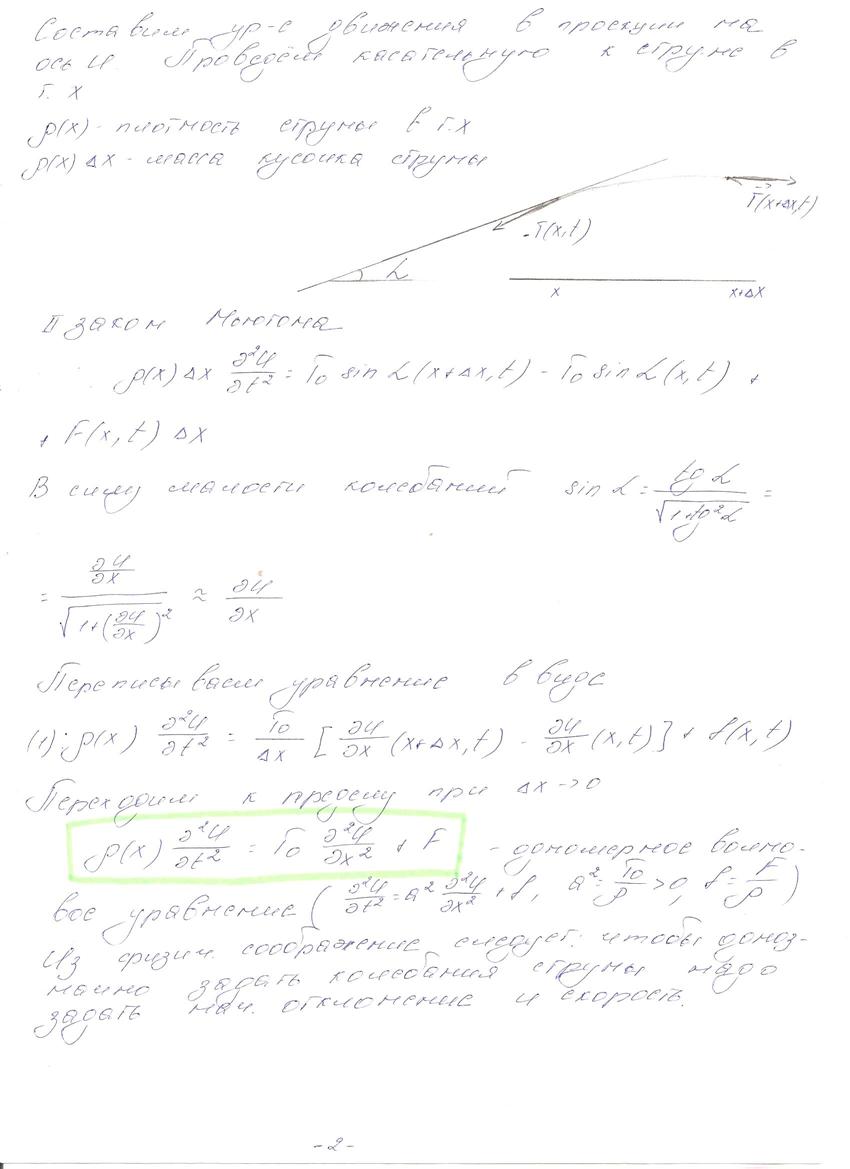 Составим ур-е движения в проекции на
ось U. Проведём касательную к струне в
т. x
ρ(x) - плотность струны в т.x
ρ(x) Δx - масса кусочка струны
T(x+Δx,t)
T(x,t)
α
x x+Δx
II закон Ньютона
ρ(x) Δx ∂²U/∂t² = T₀ sin α(x+Δx,t) - T₀ sin α(x,t) +
+ F(x,t) Δx
В силу малости колебаний sin α = tg α/√(1+tg²α) =
= (∂U/∂x)/√(1+(∂U/∂x)²) ≈ ∂U/∂x
Переписываем уравнение в виде
(1): ρ(x) ∂²U/∂t² = T₀/Δx [∂U/∂x (x+Δx,t) - ∂U/∂x (x,t)] + f(x,t)
Переходим к пределу при Δx→0
ρ(x) ∂²U/∂t² = T₀ ∂²U/∂x² + F - одномерное волно-
вое уравнение (∂²U/∂t² = a² ∂²U/∂x² + f, a² = T₀/ρ > 0, f = F/ρ)
Из физич. соображение следует: чтобы одноз-
начно задать колебания струны надо
задать нач. отклонение и скорость.
-2-